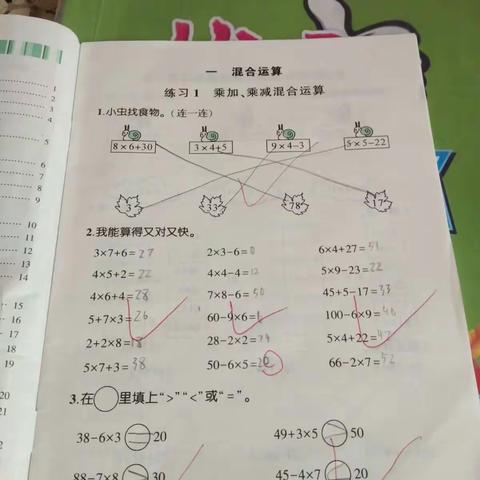 一 混合运算
练习1 乘加、乘减混合运算
1.小虫找食物。(连一连)
8×6+30 3×4+5 9×4-3 5×5-22
3 33 78 17
2.我能算得又对又快。
3×7+6=27 2×3-6=0 6×4+27=51
4×5+2=22 4×4-4=12 5×9-23=22
4×6+4=28 7×8-6=50 45+5-17=33
5+7×3=26 60-9×6=6 100-6×9=46
2+2×8=18 28-2×2=24 5×4+22=42
5×7+3=38 50-6×5=20 66-2×7=52
3.在○里填上“>”“<”或“=”。
38-6×3 20 49+3×5 50
88-7×8 30 45-4×7 20
1
2
3
4
5
6
7
8
9
10
11
12
13
14
15
16
17
18
19
20